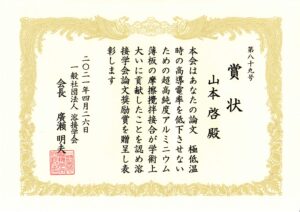 第八十九号
賞状
山本啓殿
本会はあなたの論文 極低温
時の高導電率を低下させない
ための超高純度アルミニウム
薄板の摩擦撹拌接合が学術上
大いに貢献したことを認め溶
接学会論文奨励賞を贈呈し表
彰します
二〇二一年四月二六日
一般社団法人 溶接学会
会長 廣瀬 明夫